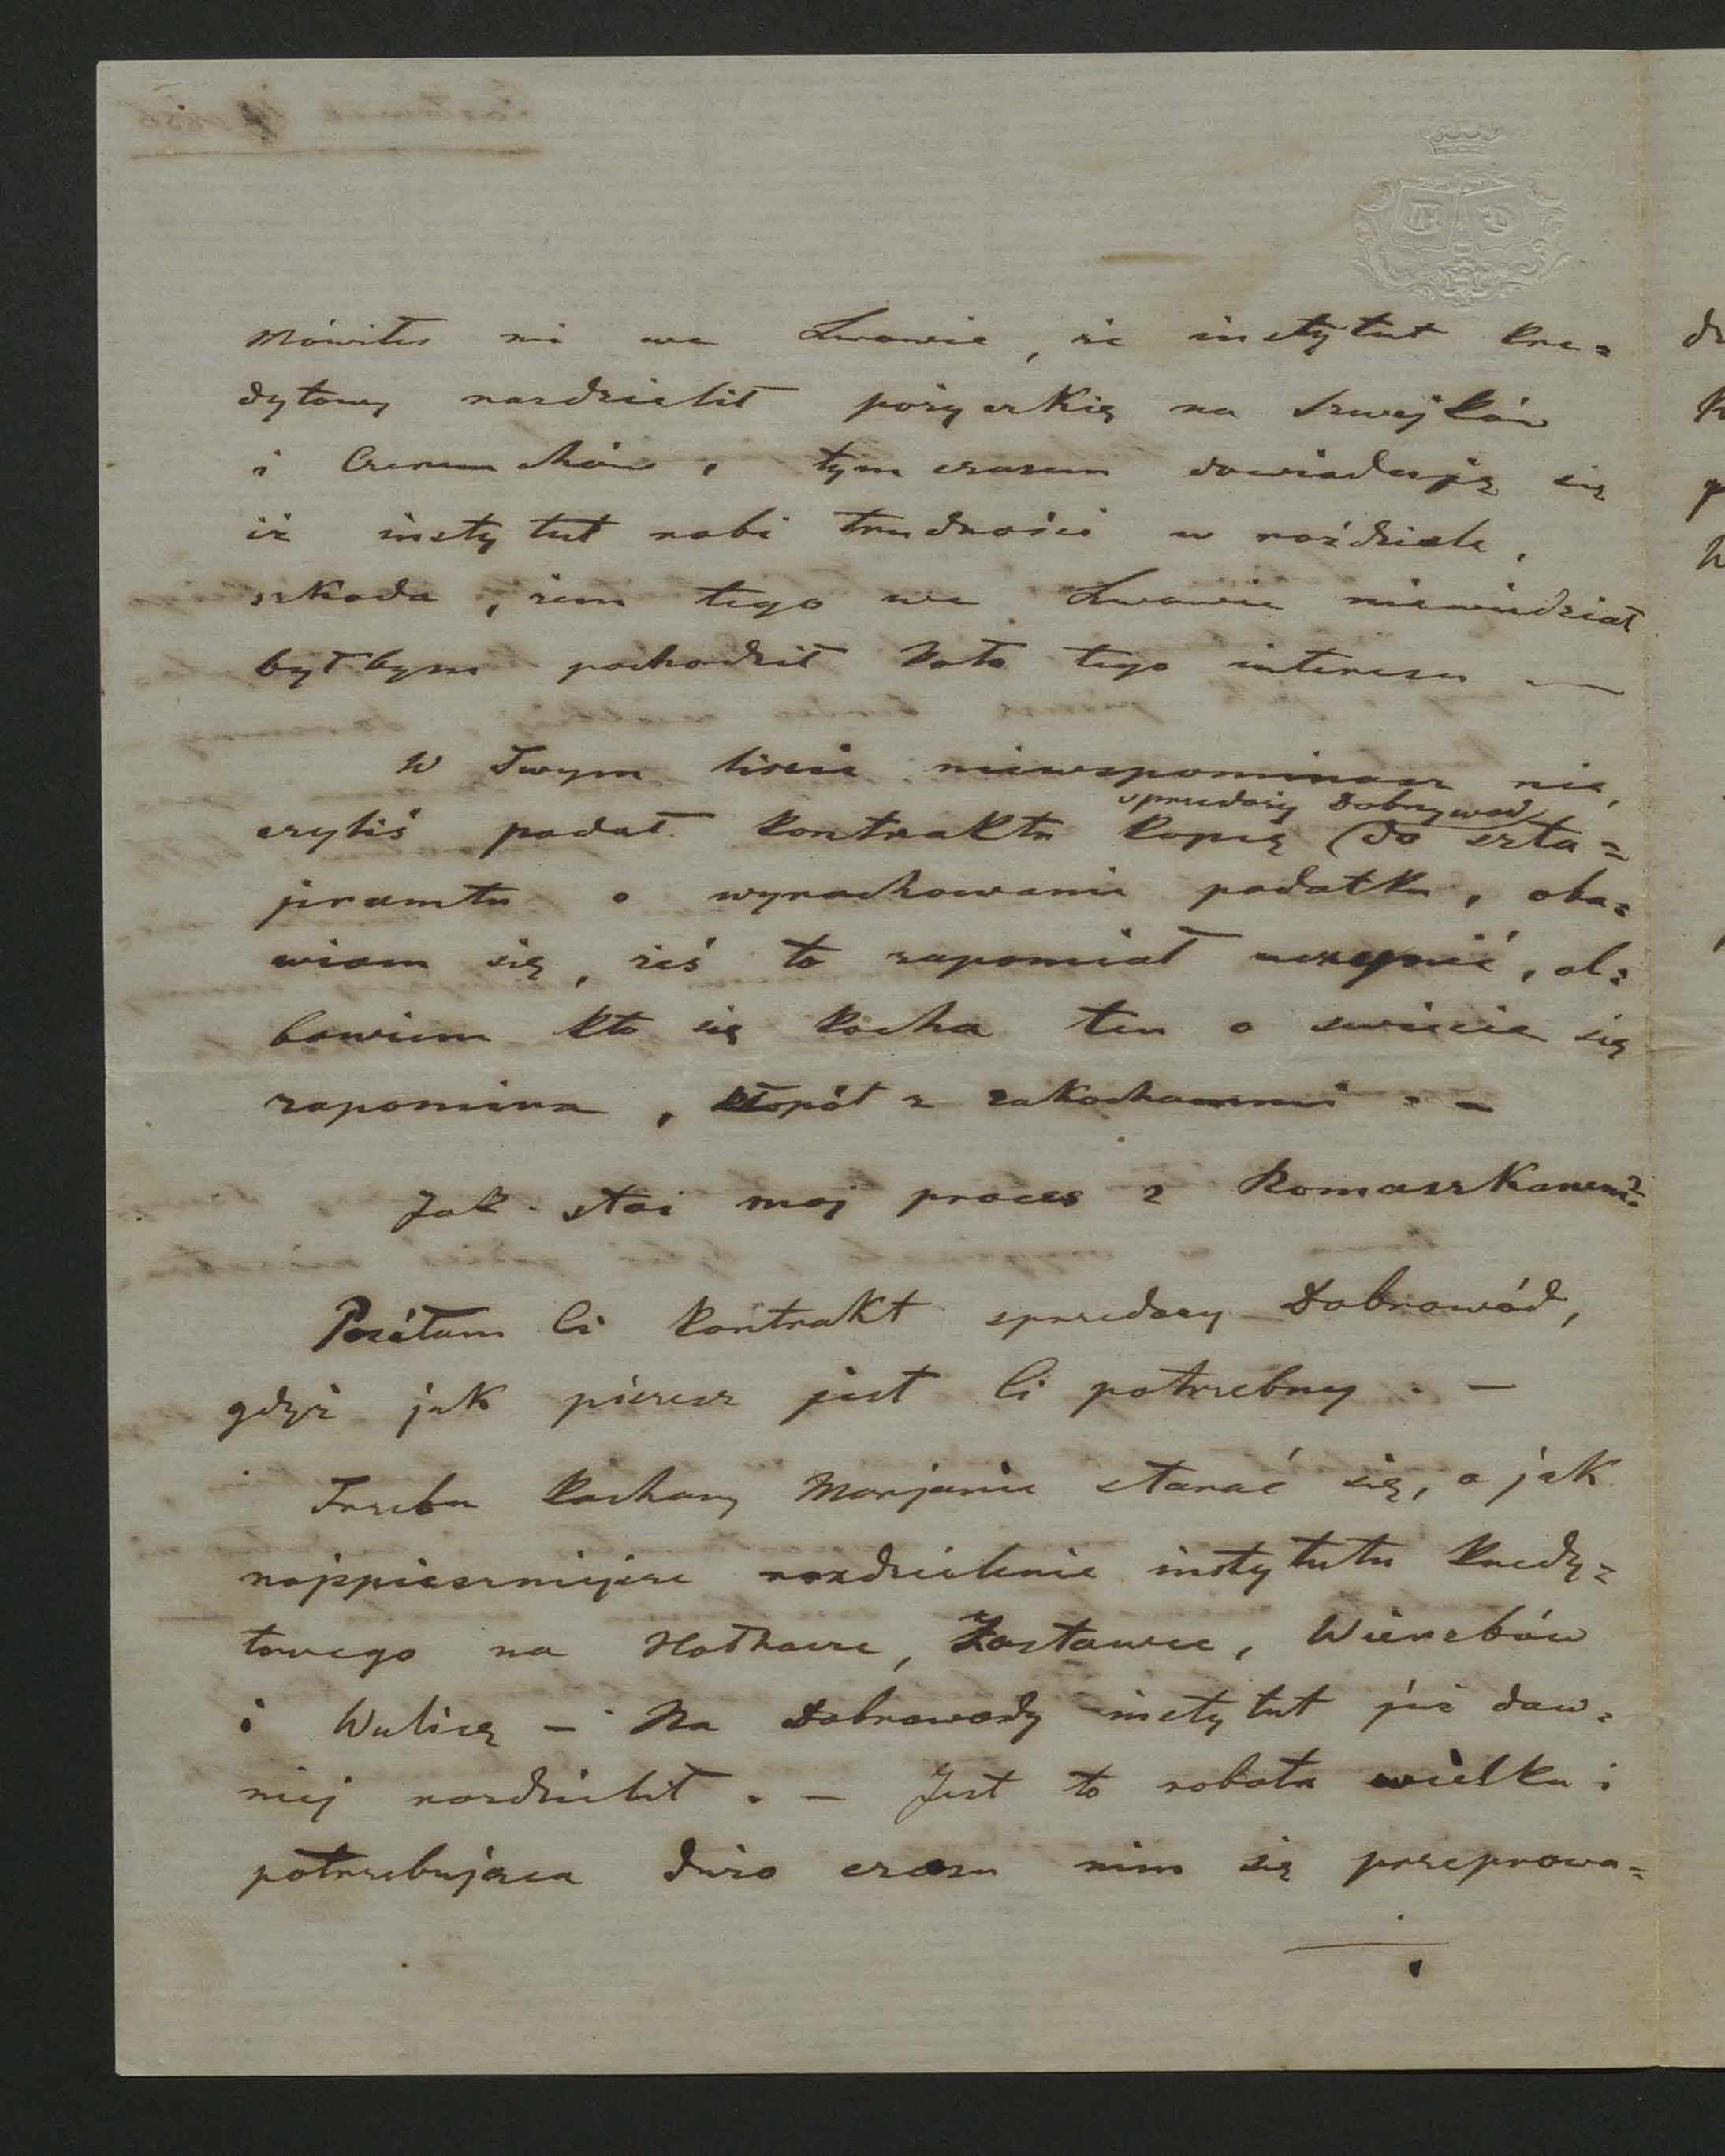 Mówiłeś mi we Lwowie, że instytut kre=
dytowy rozdzielił pożyczkię na Szwejków
i Czeremchów, tym czasem dowiaduję się
iż instytut robi trudności w roździele,
szkoda, żem tego we Lwowie niewiedział
był bym pochodził koło tego interesu —
W Twym liście niewspominasz nic,
sprzedaży Dobrywod
czyliś podał kontraktu kopię (do szta=
jeramtu o wyrachowanie podatku, oba=
wiam się, żeś to zapomiał uczynić, al=
bowiem kto się kocha ten o świecie się
zapomina, kłopót z zakochanemi . –
Jak stoi moj proces z Romaszkanem?
Posełam Ci kontrakt sprzedaży Dobrowód,
gdyż jak piszesz jest Ci potrzebny . –
Trzeba kochany Marjanie starać się, o jak
najspieszniejsze rozdzielenie instytutu kredy=
towego na Hołhocze, Zastawce, Wierzbów
i Wulicę – Na Dobrowody instytut już daw=
niej rozdzielił . – Jest to robota wielka i
potrzebująca dużo czasu nim się przeprowa=